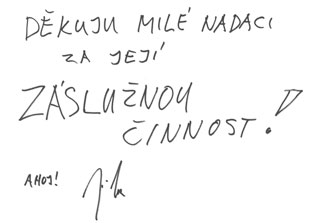 DĚKUJU MILÉ NADACI
ZA JEJÍ
ZÁSLUŽNOU
ČINNOST!
AHOJ!